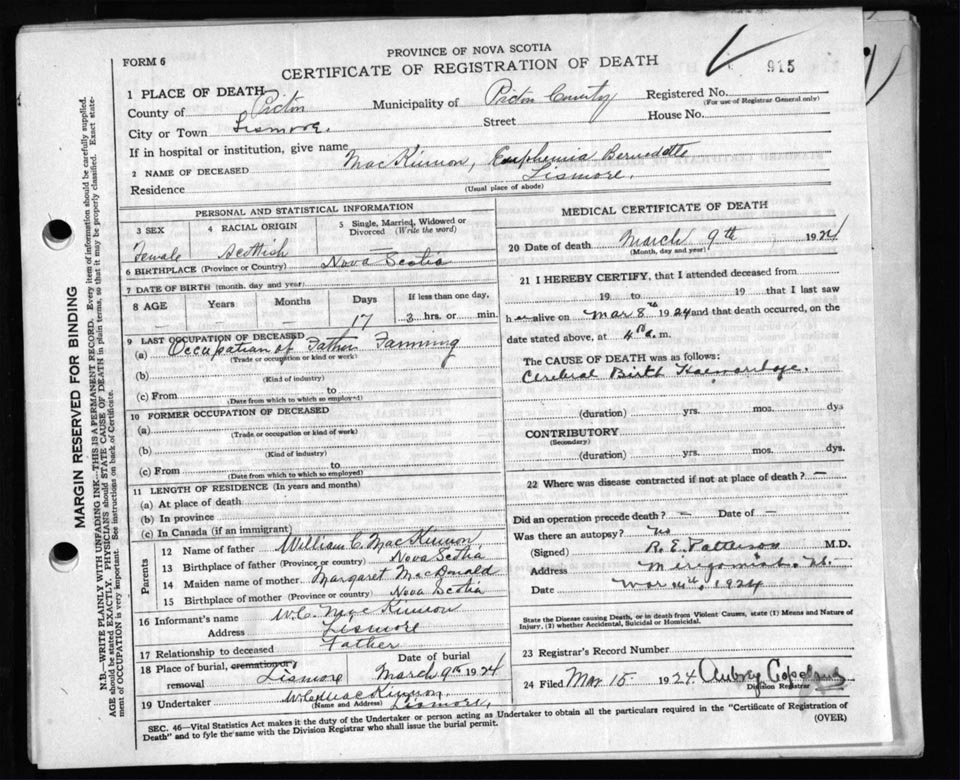 PROVINCE OF NOVA SCOTIA
FORM 6
CERTIFICATE OF REGISTRATION OF DEATH
915
1 PLACE OF DEATH
County of Pictou Municipality of Pictou County Registered No.
(For use of Registrar General only)
City or Town Lismore. Street House No.
If in hospital or institution, give name
2 NAME OF DECEASED MacKinnon, Euphemia Bernadette
Residence Lismore.
(Usual place of abode)
PERSONAL AND STATISTICAL INFORMATION
3 SEX Female
4 RACIAL ORIGIN Scottish
5 Single, Married, Widowed or Divorced (Write the word)
6 BIRTHPLACE (Province or Country) Nova Scotia
7 DATE OF BIRTH (month, day and year)
8 AGE Years Months Days If less than one day,
- - 17 3 hrs. or min.
9 LAST OCCUPATION OF DECEASED
(a) Occupation of Father Farming
(Trade or occupation or kind or work)
(b)
(Kind of industry)
(c) From to
(Date from which to which so employed)
10 FORMER OCCUPATION OF DECEASED
(a)
(Trade or occupation or kind of work)
(b)
(Kind of industry)
(c) From to
(Date from which to which employed)
11 LENGTH OF RESIDENCE (In years and months)
(a) At place of death
(b) In province
(c) In Canada (if an immigrant)
Parents
12 Name of father William C. MacKinnon
13 Birthplace of father (Province or country) Nova Scotia
14 Maiden name of mother Margaret MacDonald
15 Birthplace of mother (Province or Country) Nova Scotia
16 Informant's name W.C. MacKinnon
Address Lismore
17 Relationship to deceased Father
18 Place of burial, cremation or removal Lismore
Date of burial March 9th 1924
19 Undertaker W.C. MacKinnon,
(Name and Address) Lismore,
MEDICAL CERTIFICATE OF DEATH
20 Date of death March 9th 1924
(Month, day and year)
21 I HEREBY CERTIFY, that I attended deceased from
19 to 19 that I last saw
h alive on Mar 8th 1924 and that death occurred, on the
date stated above, at 4 a. m.
The CAUSE OF DEATH was as follows:
Cerebral Birth Haemorrhage.
(duration) yrs. mos. dys
CONTRIBUTORY
(Secondary)
(duration) yrs. mos. dys.
22 Where was disease contracted if not at place of death? —
Did an operation precede death? — Date of —
Was there an autopsy? No
(Signed) R. E. Patterson M.D.
Address
Date 1924
State the Disease causing Death, or in death from Violent Causes, state (1) Means and Nature of Injury, (2) whether Accidental, Suicidal or Homicidal.
23 Registrar's Record Number
24 Filed Mar 15 1924 Aubrey Copeland
Division Registrar
SEC. 46—Vital Statistics Act makes it the duty of the Undertaker or person acting as Undertaker to obtain all the particulars required in the "Certificate of Registration of
Death" and to fyle the same with the Division Registrar who shall issue the burial permit.
(OVER)
MARGIN RESERVED FOR BINDING
N.B.—WRITE PLAINLY WITH UNFADING INK—THIS IS A PERMANENT RECORD. Every item of information should be carefully supplied.
AGE should be stated EXACTLY. PHYSICIANS should STATE CAUSE OF DEATH in plain terms, so that it may be properly classified. Exact state-
ment of OCCUPATION is very important. See instructions on back of Certificate.